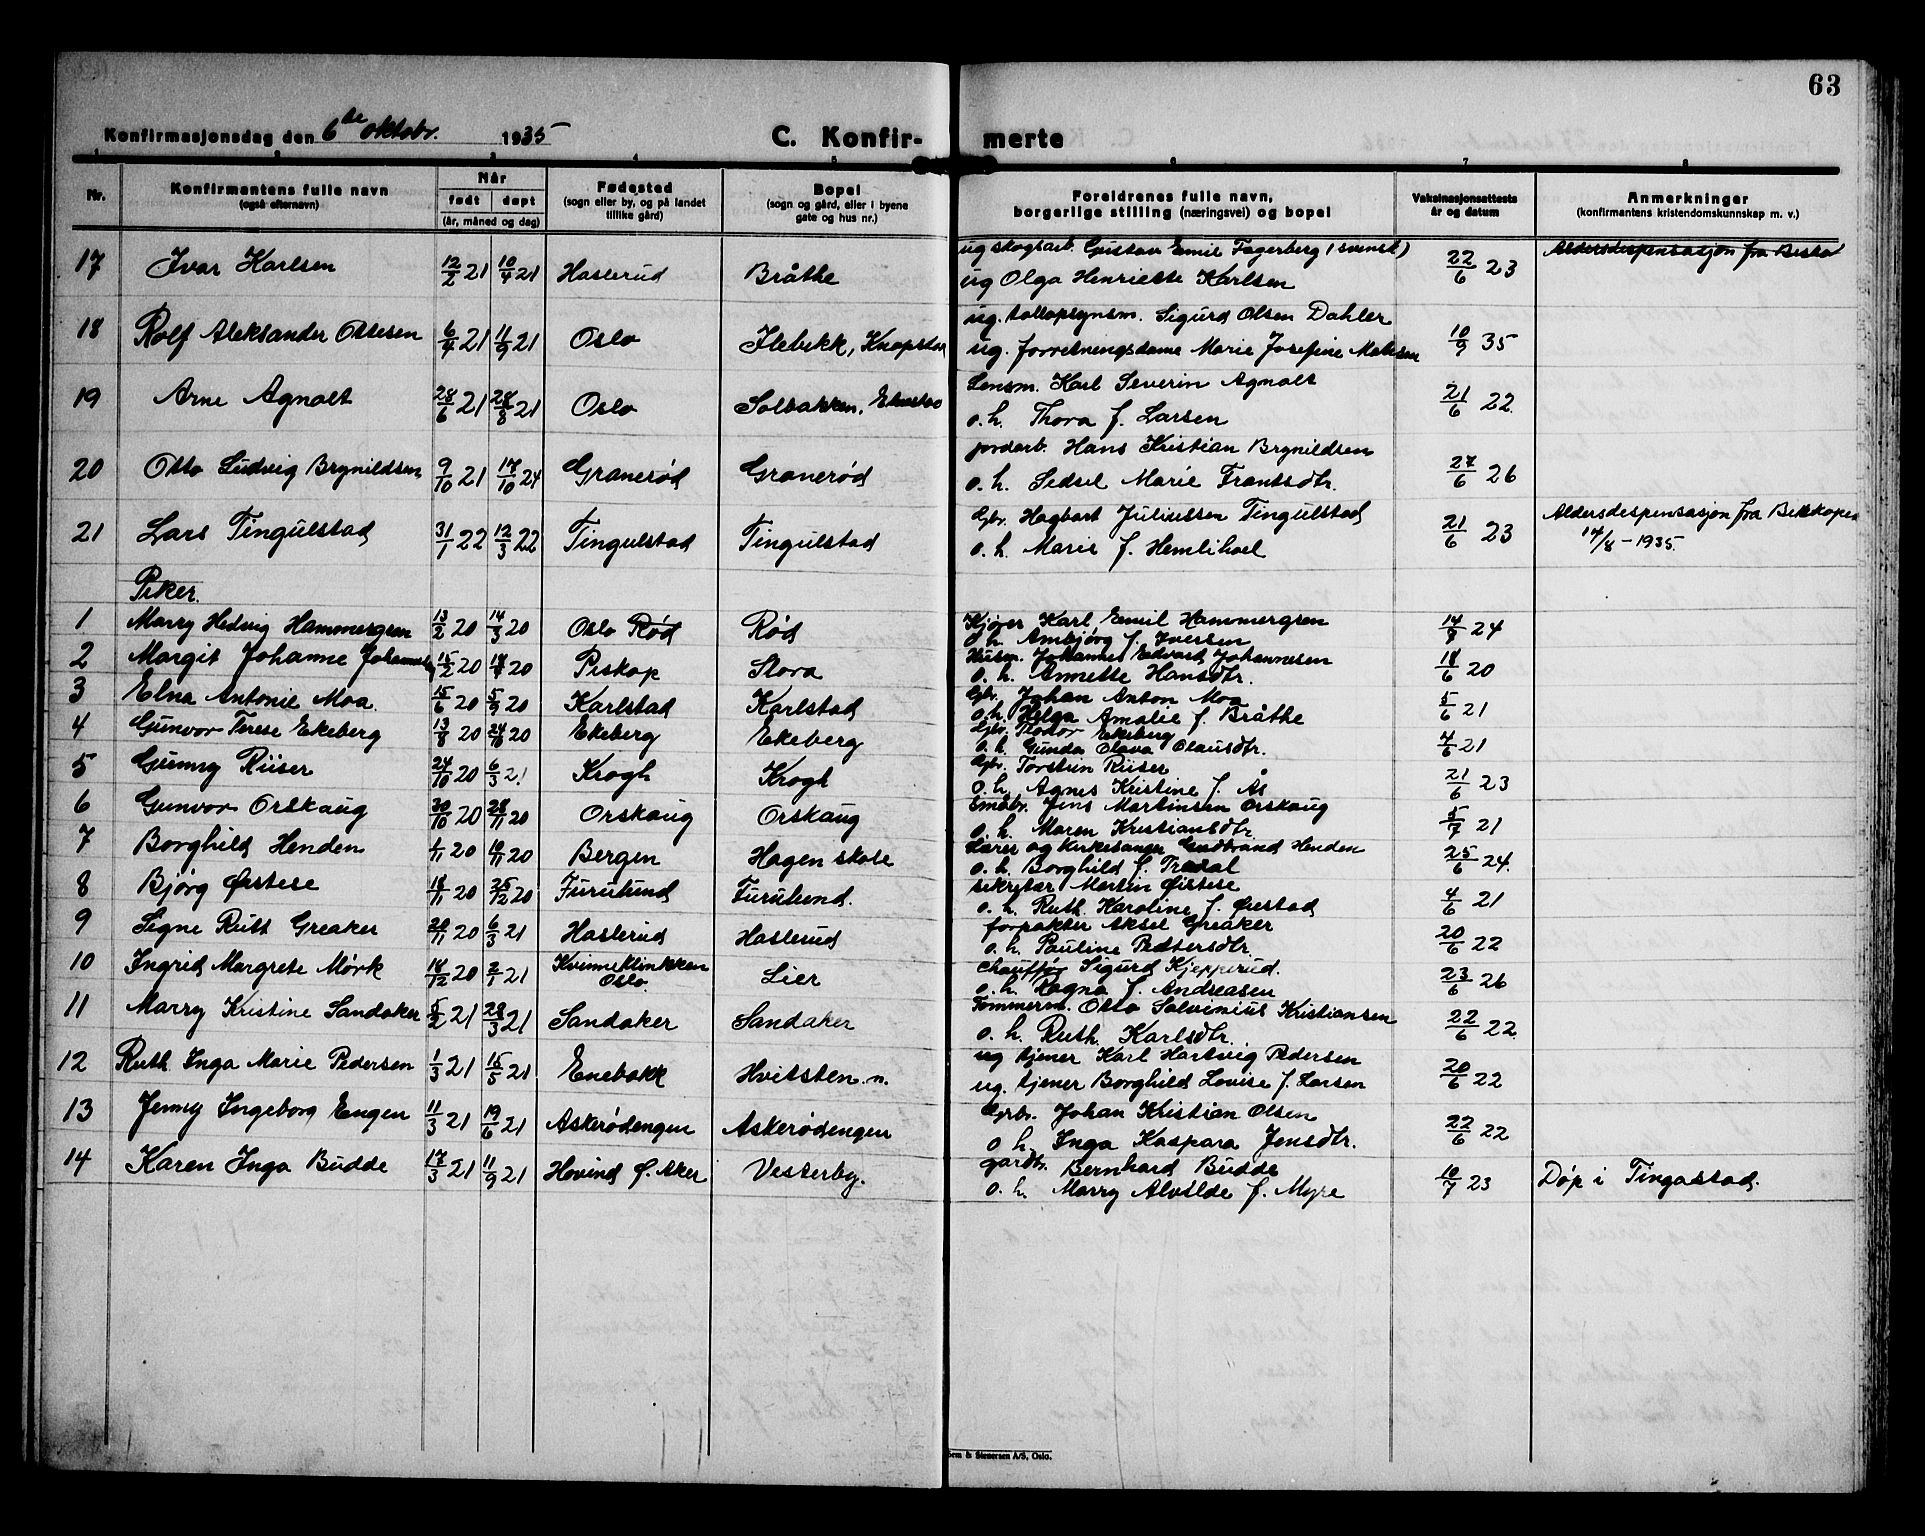 63
Konfirmasjonsdag den 6te oktobr. 1935
C. Konfir- merte
1 2 3 4 5 6 7 8
Nr. Konfirmantens fulle navn (også efternavn) Når født døpt (år, måned og dag) Fødested (sogn eller by, og på landet tillike gård) Bopel (sogn og gård, eller i byene gate og hus nr.) Foreldrenes fulle navn, borgerlige stilling (næringsvei) og bopel Vaksinasjonsattests år og datum Anmerkninger (konfirmantens kristendomskunnskap m. v.)
17 Ivar Karlsen 12/2 21 10/4 21 Haslerud Bråthe ug skogsarb. Gustav Emil Fagerberg (svensk) 22/6 23 Aldersdespensasjon fra Biskop
ug Olga Henriette Karlsen
18 Rolf Aleksander Ottesen 6/4 21 11/9 21 Oslo Ilebekk, Knapstad ug. tollopsynsm. Sigurd Olsen Dahler 10/9 35
ug. forretningsdame Marie Josefine
19 Arne Agnalt 28/6 21 28/8 21 Oslo Solbakken, Lensm. Karl Severin Agnalt 21/6 22
o. h. Thora f. Larsen
20 Otto Ludvig Brynildsen 9/10 21 17/10 24 Granerød Granerød jordarb. Hans Kristian Brynildsen 27/6 26
o. h. Sedsel Marie Frantsdtr.
21 Lars Tingulstad 31/1 22 12/3 22 Tingulstad Tingulstad Gbr. Hagbart Juliussen Tingulstad 21/6 23 Aldersdespensasjon fra Biskopen
o. h. Marie f. Hemlihoel 14/8 - 1935.
Piker.
1 Marry Hedvig Hammergren 13/2 20 14/3 20 Oslo Rød Rød Kjører Karl Emil Hammergren 14/9 24
o. h. Ambjørg f. Iversen
2 Margit Johanne 15/2 20 20 Piskop Slora Husm. Johannes Edvard Johannesen 18/6 20
o. h. Annette Hansdtr.
3 Elna Antonie Moa. 15/6 20 5/9 20 Karlstad Karlstad Gbr. Johan Anton Moa 5/6 21
o. h. Helga Amalie f. Bråthe
4 Gunvor Terese Ekeberg 13/8 20 24/10 20 Ekeberg Ekeberg Gbr. Ekeberg 4/6 21
o. h. Gunda Olava Olausdtr.
5 Gunny Riiser 24/10 20 6/3 21 Krogh Krogh Gbr. Torstein Riiser 21/6 23
o. h. Agnes Kristine f. Ås
6 Gunvor Orskaug 30/10 20 28/11 20 Orskaug Orskaug Småbr. Jens Martinsen Orskaug 5/7 21
o. h. Maren Kristiansdtr.
7 Borghild Henden 1/11 20 10/11 20 Bergen Hagen skole Lærer og kirkesanger Gudbrand Henden 25/6 24.
o. h. Borghild f. Tredal
8 Bjørg Østese 18/11 20 25/12 20 Furulund Furulund. sekretær Martin Østese 4/6 21
o. h. Ruth Karoline f. Ørstad
9 Signe Rutt Greaker 20/11 20 6/3 21 Haslerud Haslerud forpakter Aksel Greaker 20/6 22
o. h. Pauline Pettersdtr.
10 Ingrid Margrete Mørk 18/12 20 2/1 21 Kvinneklinikken Oslo. Lier Chauffør Sigurd Kjepperud. 23/6 26
o. h. Ragna f. Andreasen
11 Marry Kristine Sandaker 5/2 21 28/3 21 Sandaker Sandaker Tømmerm. Otto Salvinius Kristiansen 22/6 22.
o. h. Ruth Karlsdtr.
12 Ruth Inga Marie Pedersen 1/3 21 15/5 21 Enebakk Hvitsten. n. ug tjener Karl Hartvig Pedersen 20/6 22
ug. tjener Borghild Lovise f. Larsen
13 Jenny Ingeborg Engen 11/3 21 19/6 21 Askerødengen Askerødengen Gbr. Johan Kristian Olsen 22/6 22
o h. Inga Kaspara Jensdtr.
14 Karen Inga Budde 17/3 21 11/9 21 Hovind Ø. Aker Vesterby. gårdbr. Bernhard Budde 10/7 23 Døp i Tingastad.
o. h. Marry Alvilde f. Myre
& Stenersen A/S, Oslo.